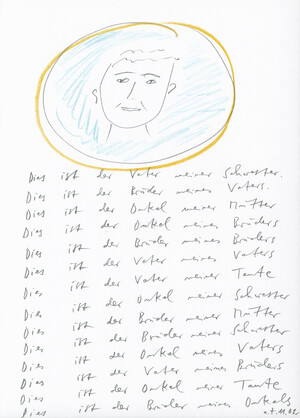 Dies ist der Vater meiner Schwester.
Dies ist der Bruder meines Vaters.
Dies ist der Onkel meiner Mutter
Dies ist der Onkel meines Bruders
Dies ist der Bruder meines Bruders
Dies ist der Vater meines Vaters
Dies ist der Vater meiner Tante
Dies ist der Onkel meiner Schwester
Dies ist der Bruder meiner Mutter
Dies ist der Bruder meiner Schwester
Dies ist der Onkel meines Vaters
Dies ist der Vater meines Bruders
Dies ist der Onkel meiner Tante
Dies ist der Bruder meines Onkels